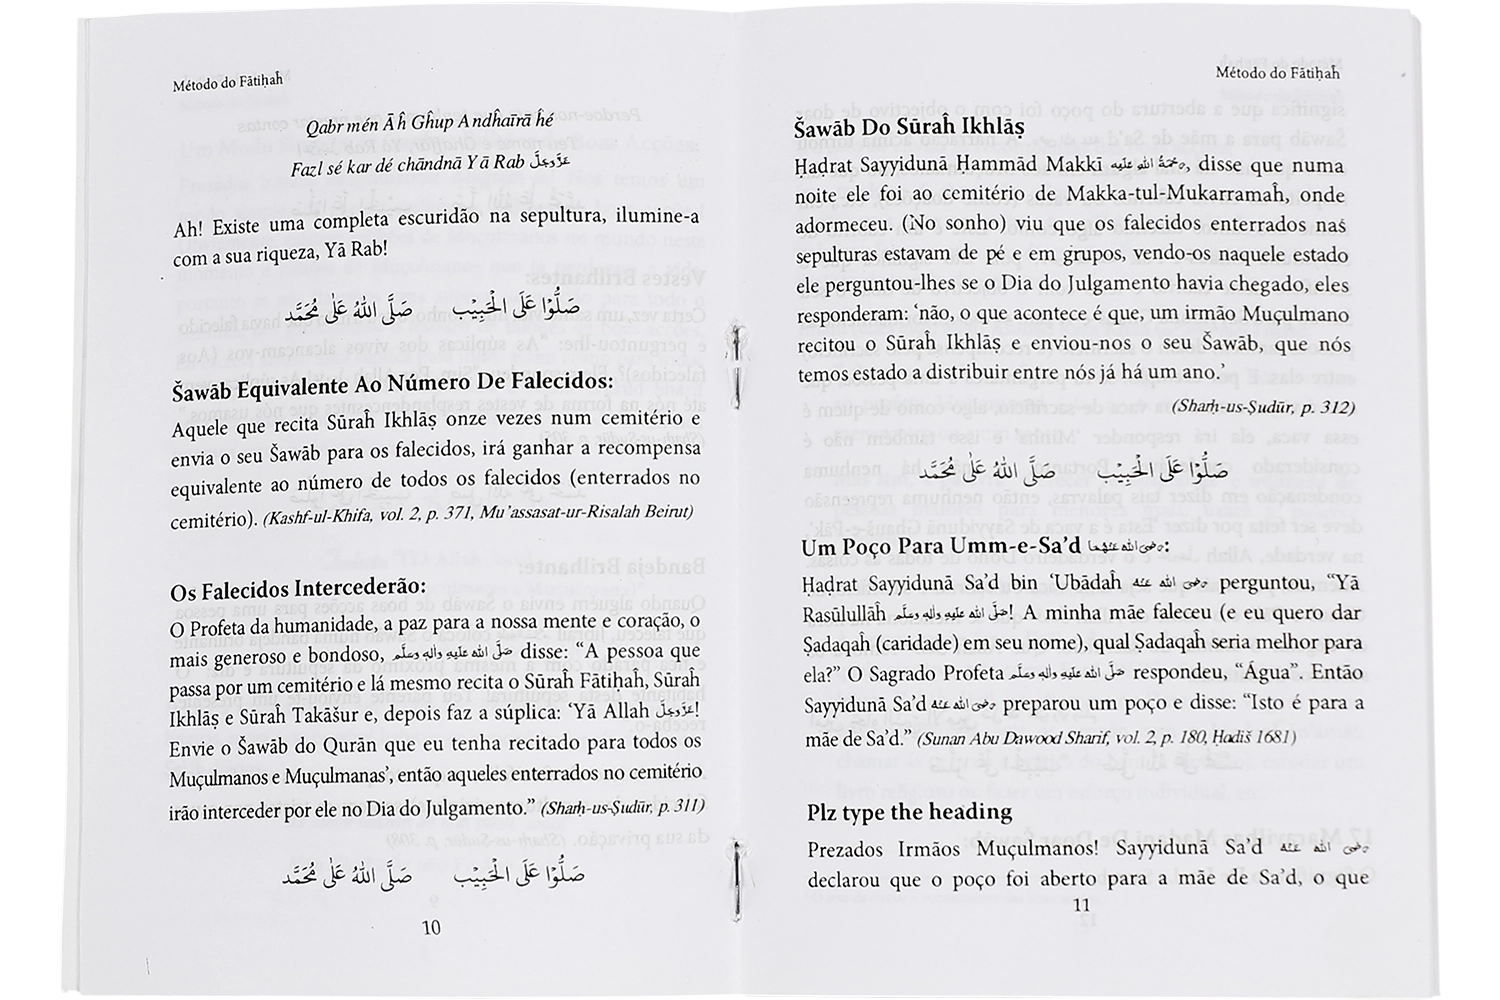 Método do Fātiḥaĥ
Qabr mén Āĥ Gĥup Andĥaīrā ĥé
Fazl sé kar dé chāndnā Yā Rab عَزَّوَجَلَّ
Ah! Existe uma completa escuridão na sepultura, ilumine-a
com a sua riqueza, Yā Rab!
صَلُّوْا عَلَى الْحَبِيْب صَلَّى اللهُ عَلٰى مُحَمَّد
Šawāb Equivalente Ao Número De Falecidos:
Aquele que recita Sūraĥ Ikhlāṣ onze vezes num cemitério e
envia o seu Šawāb para os falecidos, irá ganhar a recompensa
equivalente ao número de todos os falecidos (enterrados no
cemitério). (Kashf-ul-Khifa, vol. 2, p. 371, Mu’assasat-ur-Risalah Beirut)
Os Falecidos Intercederão:
O Profeta da humanidade, a paz para a nossa mente e coração, o
mais generoso e bondoso, صَلَّى اللّٰه عَلَيْهِ وَاٰلِهٖ وَسَلَّم disse: “A pessoa que
passa por um cemitério e lá mesmo recita o Sūraĥ Fātiḥaĥ, Sūraĥ
Ikhlāṣ e Sūraĥ Takāšur e, depois faz a súplica: ‘Yā Allah عَزَّوَجَلَّ!
Envie o Šawāb do Qurān que eu tenha recitado para todos os
Muçulmanos e Muçulmanas’, então aqueles enterrados no cemitério
irão interceder por ele no Dia do Julgamento.” (Sharḥ-us-Ṣudūr, p. 311)
صَلُّوْا عَلَى الْحَبِيْب صَلَّى اللهُ عَلٰى مُحَمَّد
10
Método do Fātiḥaĥ
Šawāb Do Sūraĥ Ikhlāṣ
Ḥaḍrat Sayyidunā Ḥammād Makkī رَحْمَةُ اللّٰهِ عَلَيْه, disse que numa
noite ele foi ao cemitério de Makka-tul-Mukarramaĥ, onde
adormeceu. (No sonho) viu que os falecidos enterrados nas
sepulturas estavam de pé e em grupos, vendo-os naquele estado
ele perguntou-lhes se o Dia do Julgamento havia chegado, eles
responderam: ‘não, o que acontece é que, um irmão Muçulmano
recitou o Sūraĥ Ikhlāṣ e enviou-nos o seu Šawāb, que nós
temos estado a distribuir entre nós já há um ano.’
(Sharḥ-us-Ṣudūr, p. 312)
صَلُّوْا عَلَى الْحَبِيْب صَلَّى اللهُ عَلٰى مُحَمَّد
Um Poço Para Umm-e-Sa’d رَضِیَ اللّٰه عَنْهُمَا:
Ḥaḍrat Sayyidunā Sa’d bin ‘Ubādaĥ رَضِیَ اللّٰه عَنْهُ perguntou, “Yā
Rasūlullāĥ صَلَّى اللّٰه عَلَيْهِ وَاٰلِهٖ وَسَلَّم! A minha mãe faleceu (e eu quero dar
Ṣadaqaĥ (caridade) em seu nome), qual Ṣadaqaĥ seria melhor para
ela?” O Sagrado Profeta صَلَّى اللّٰه عَلَيْهِ وَاٰلِهٖ وَسَلَّم respondeu, “Água”. Então
Sayyidunā Sa’d رَضِیَ اللّٰه عَنْهُ preparou um poço e disse: “Isto é para a
mãe de Sa’d.” (Sunan Abu Dawood Sharif, vol. 2, p. 180, Ḥadiš 1681)
Plz type the heading
Prezados Irmãos Muçulmanos! Sayyidunā Sa’d رَضِیَ اللّٰه عَنْهُ
declarou que o poço foi aberto para a mãe de Sa’d, o que
11